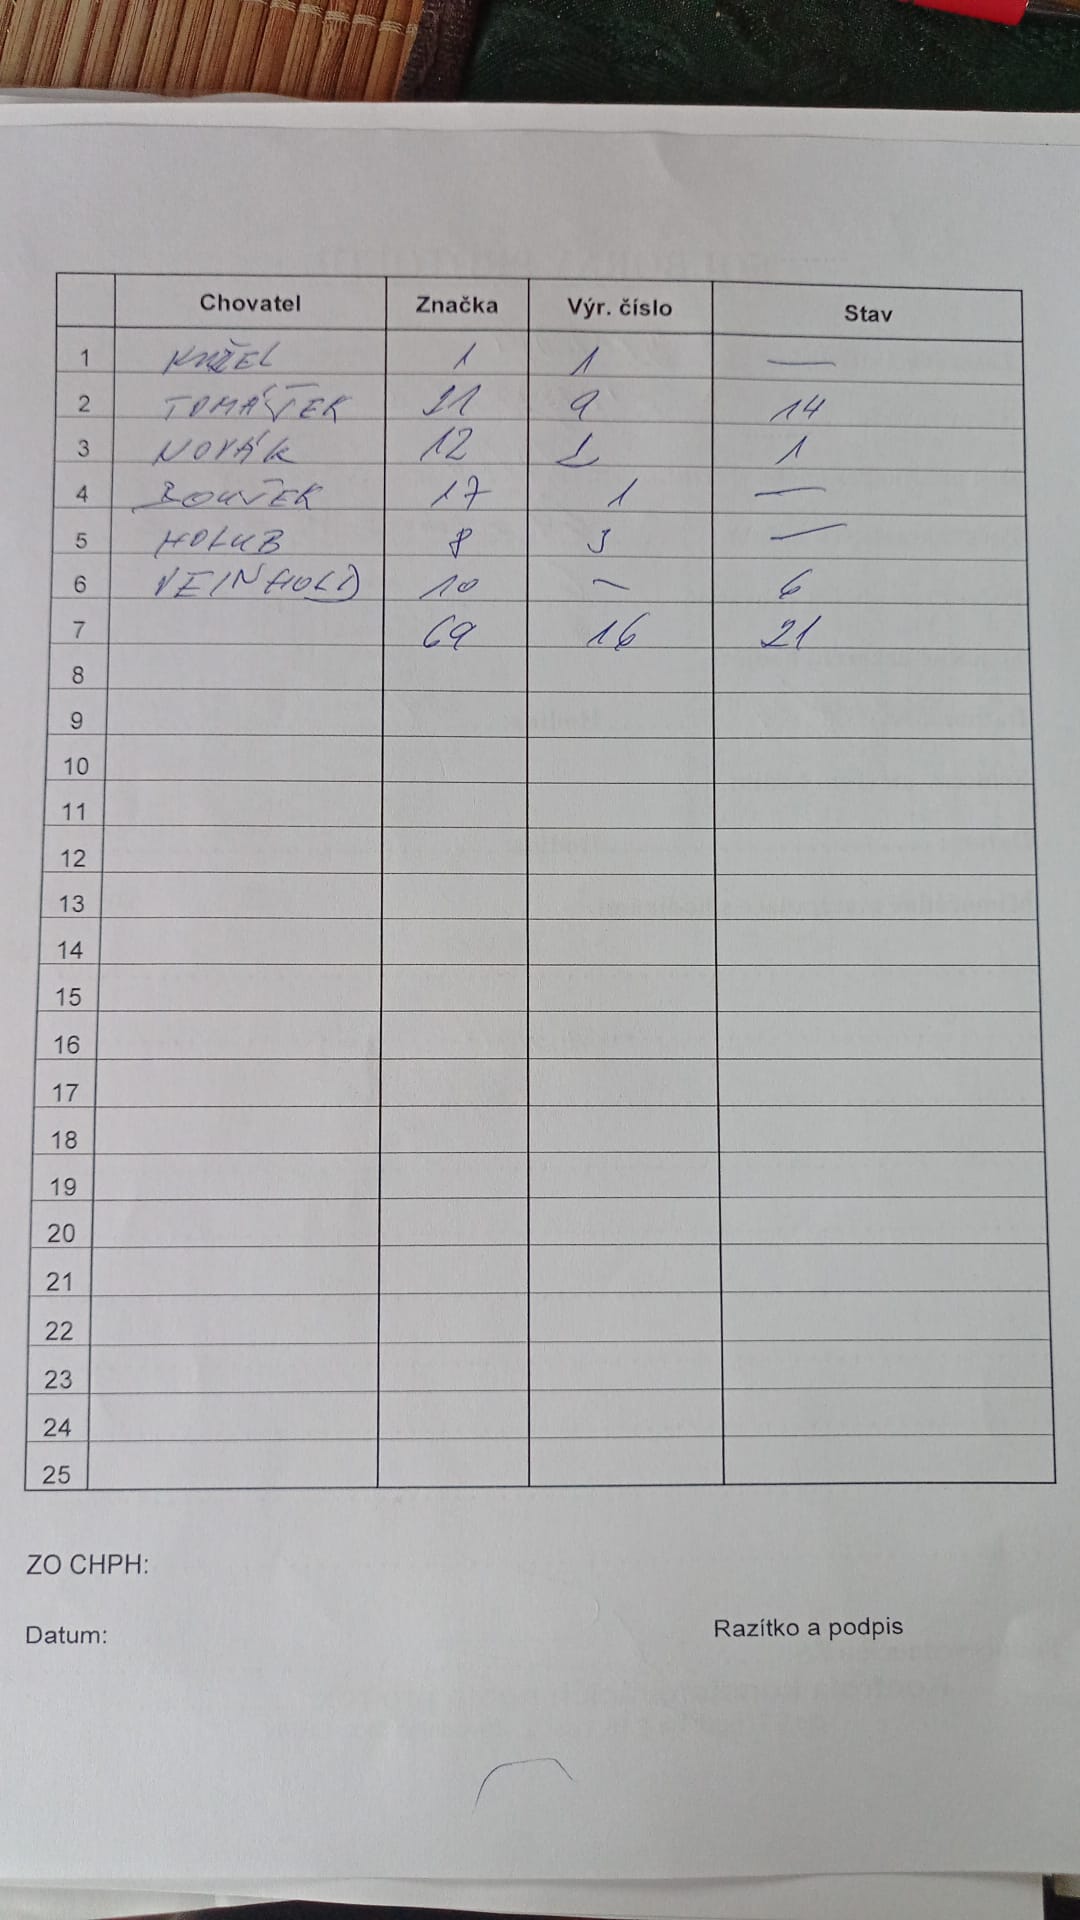 Chovatel Značka Výr. číslo Stav
1 KNŽEL 1 1 —
2 TOMÁŠEK 21 9 14
3 NOVÁK 12 1 1
4 BOUŠEK 17 1 —
5 HOLUB 8 3 —
6 VEINHOLD 10 — 6
7 69 16 21
8
9
10
11
12
13
14
15
16
17
18
19
20
21
22
23
24
25
ZO CHPH:
Datum: Razítko a podpis